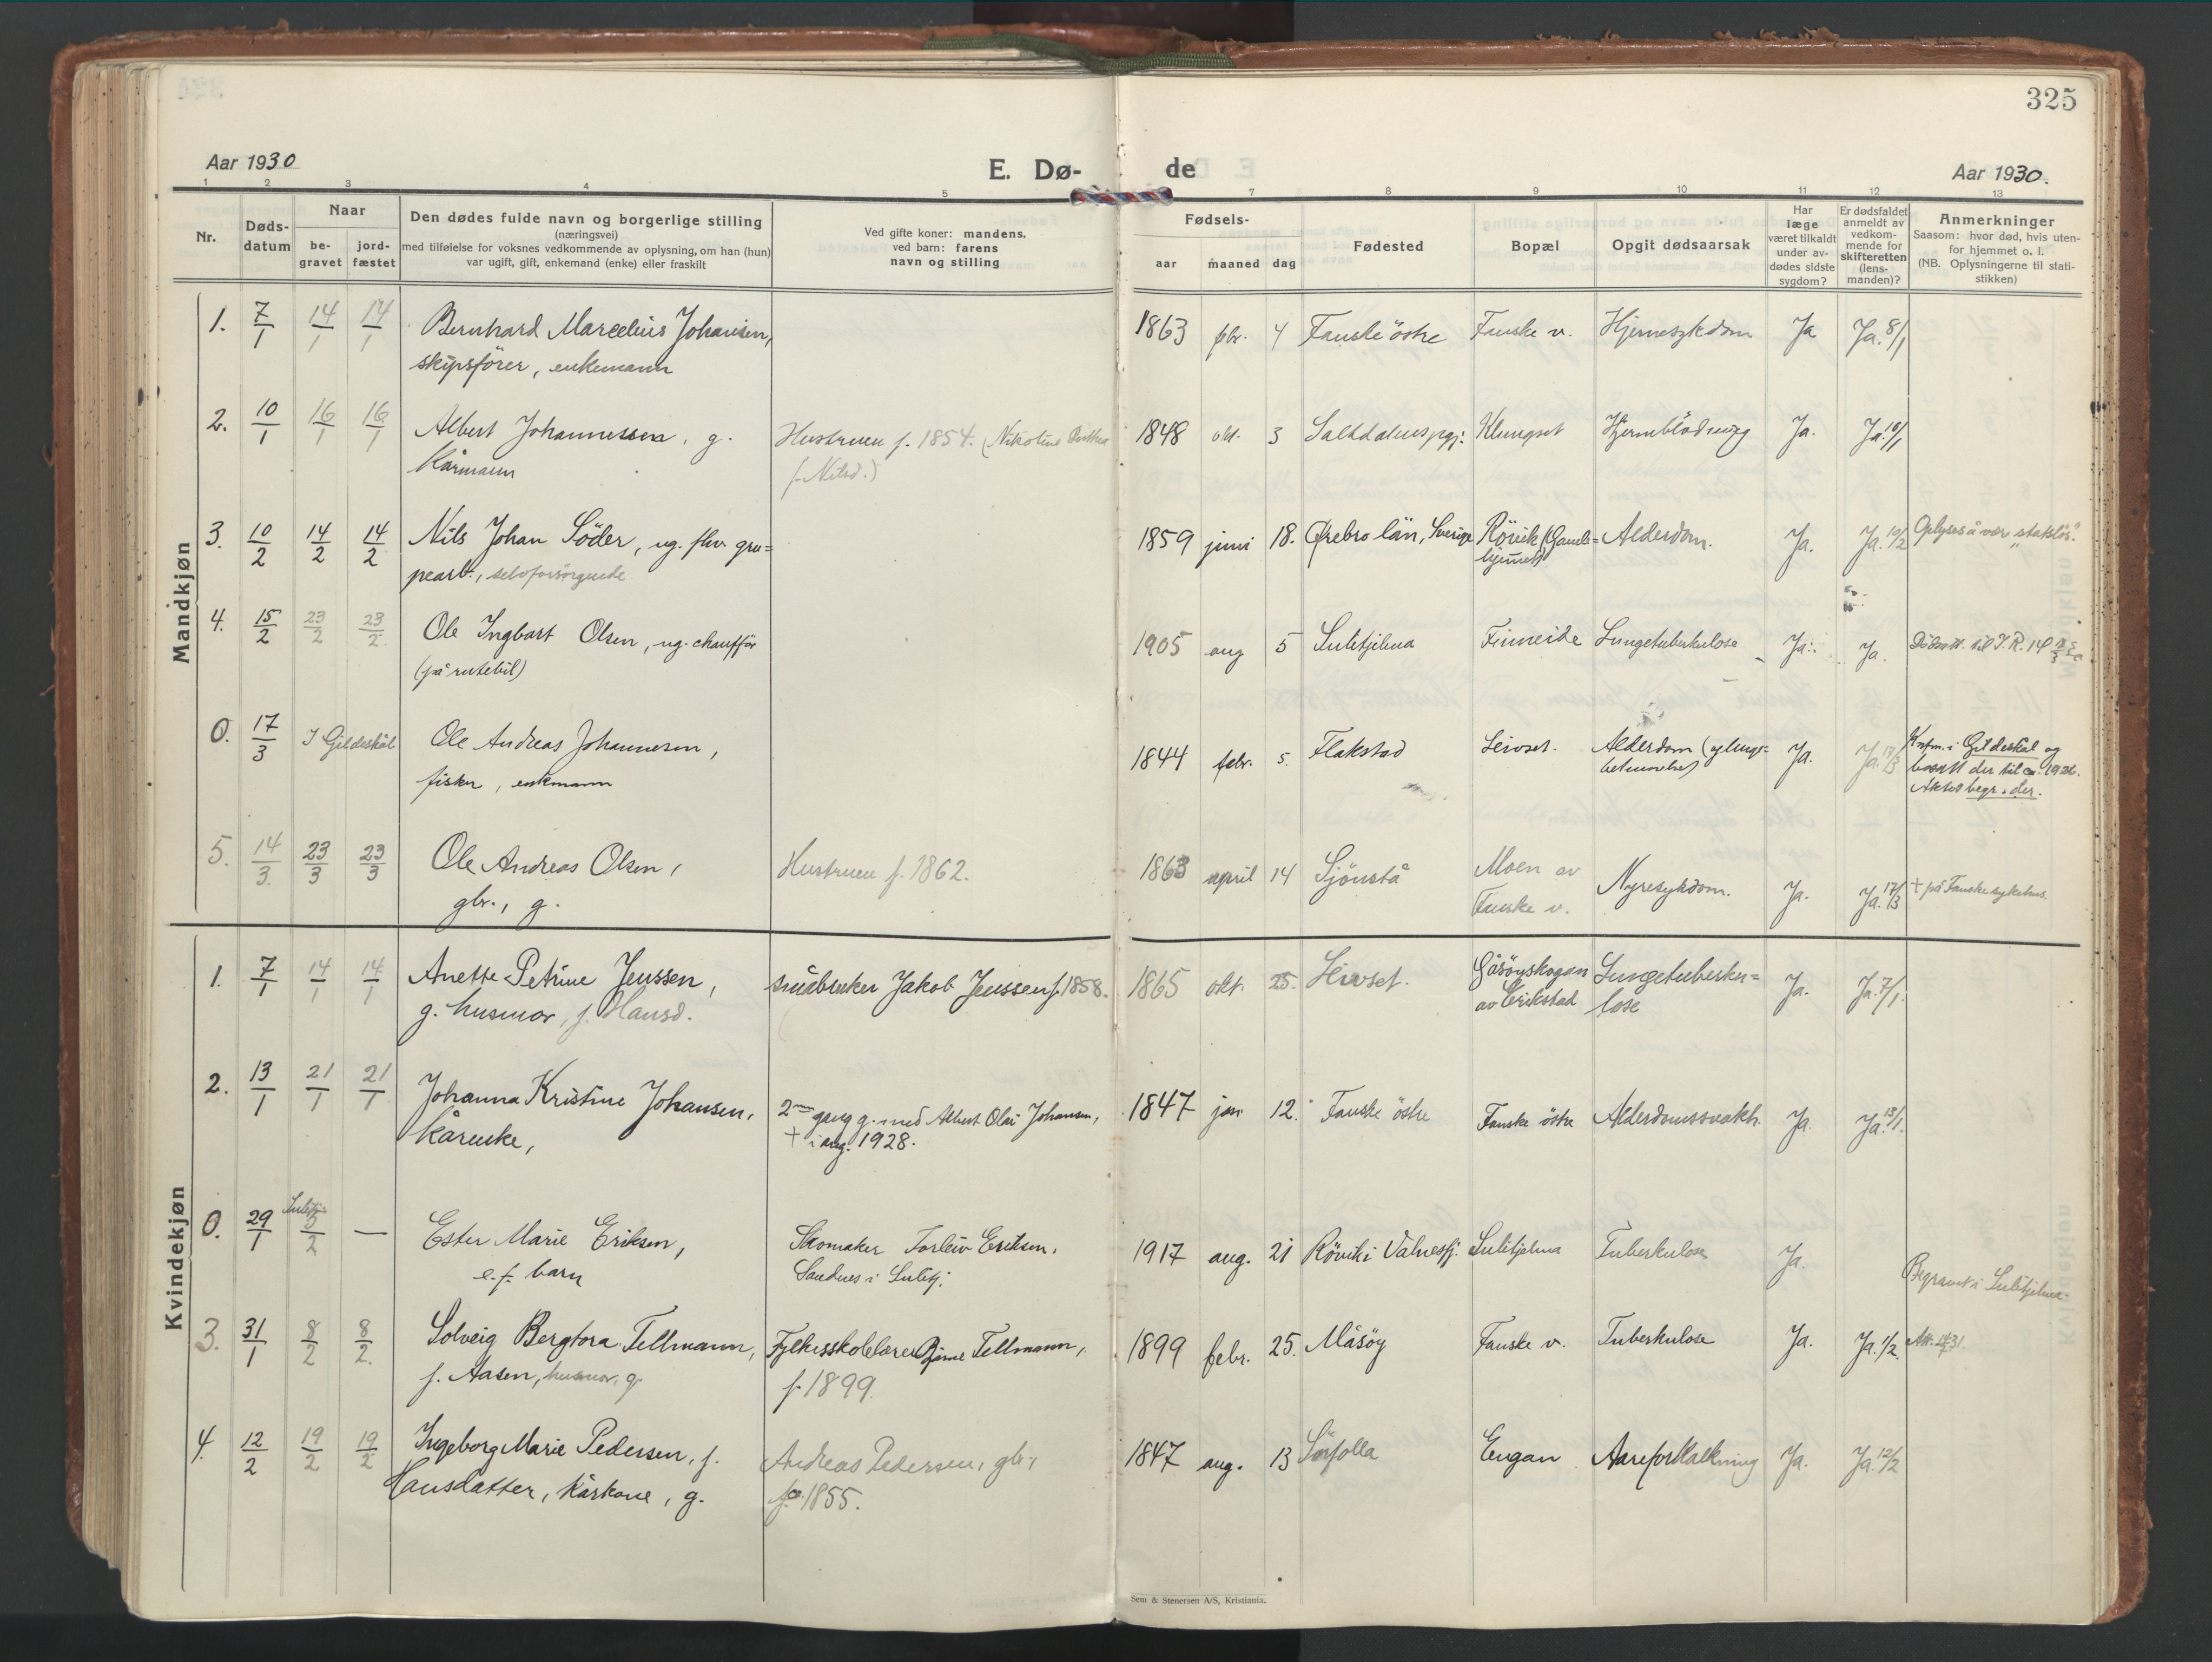 325
Aar 1930
E. Dø-
de
Aar 1930.
1 2 3 4 5 7 8 9 10 11 12 13
Nr.
Døds-
datum
Naar
be-
gravet
jord-
fæstet
Den dødes fulde navn og borgerlige stilling
(næringsvei)
med tilføielse for voksnes vedkommende av oplysning, om han (hun)
var ugift, gift, enkemand (enke) eller fraskilt
Ved gifte koner: mandens,
ved barn: farens
navn og stilling
Fødsels-
aar
maaned
dag
Fødested
Bopæl
Opgit dødsaarsak
Har
læge
været tilkaldt
under av-
dødes sidste
sygdom?
Er dødsfaldet
anmeldt av
vedkom-
mende for
skifteretten
(lens-
manden)?
Anmerkninger
Saasom: hvor død, hvis uten-
for hjemmet o. l.
(NB. Oplysningerne til stati-
stikken)
Mandkjøn
1. 7/1 14/1 14/1 Bernhard Marcelius Johansen, 1863 febr. 4 Fauske östre Fauske v. Hjernesykdom Ja Ja. 8/1
skipsförer, enkemann
2. 10/1 16/1 16/1 Albert Johannessen, g. Hustruen f. 1854. (Nikoline 1848 okt. 3 Saltdalens pgj. Klungset Hjerneblödning Ja. Ja. 10/1
kårmann f. Nilsd.)
3. 10/2 14/2 14/2 Nils Johan Söder, ug. fhv. gru= 1859 juni 18. Örebro län, Sverige Rövik (Gamle= Alderdom. Ja. Ja. 10/2 Oplyses å vær "statslös".
pearb., selvforsörgende hjemmet)
4. 15/2 23/2 23/2 Ole Ingbart Olsen, ug. chaufför 1905 aug 5 Sulitjelma Finneide Lungetuberkulose Ja. Ja. Dödsatt. til I.R. 14
(på rutebil)
0. 17/3 I Gildeskål Ole Andreas Johannesen, 1844 febr. 5. Flakstad Leivset. Alderdom (og lunge= Ja. Ja. 17/3 i Gildeskål og
fisker, enkemann betennelse) bosatt der til ca. 192
begr. der.
5. 14/3. 23/3 23/3 Ole Andreas Olsen, Hustruen f. 1862. 1863 april 14 Sjönstå Moen av Nyresykdom. Ja. Ja. 17/3 + på Fauske sykehus.
gbr., g. Fauske v.
Kvindekjøn
1. 7/1 14/1 14/1 Anette Petrine Jenssen, småbruker Jakob Jenssen f. 1858. 1865 okt. 25. Leivset. Gåsöyskogen Lungetuberku= Ja. Ja. 7/1.
g. husmor, f. Hansd. av Erikstad lose
2. 13/1 21/1 21/1 Johanna Kristine Johansen, 2nen gang g. med Albert Olai Johansen, 1847 jan 12. Fauske östre Fauske östre Alderdomssvakh. Ja. Ja. 13/1.
kårenke, + i aug. 1928.
0. 29/1 Sulitj. /2 — Ester Marie Eriksen, Skomaker Torleiv Eriksen, 1917 aug. 21 Rövik i Valnesfj. Sulitjelma Tuberkulose Ja. Begravet i Sulitjelma.
e.f. barn Sandnes i Sulitj.
3. 31/1 8/2 8/2. Solveig Bergtora Tellmann, Fylkesskolelærer Bjarne Tellmann, 1899 febr. 25. Måsöy Fauske v. Tuberkulose Ja. Ja. 1/2. Att.
f. Aasen, husmor, g. f. 1899.
4. 12/2 19/2 19/2 Ingeborg Marie Pedersen, f. Andreas Pedersen, gbr., 1847 aug. 13 Sörfolla Engan Aareforkalkning Ja. Ja. 12/2
Hansdatter, kårkone, g. f. 1855.
Sem & Stenersen A/S, Kristiania.